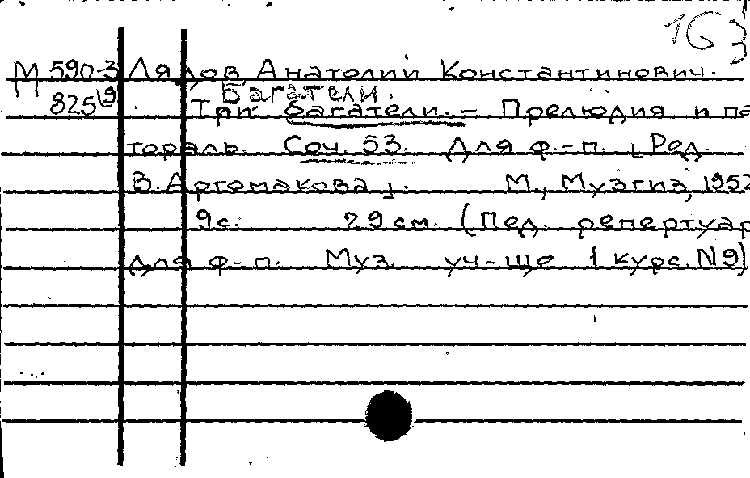 163
М 590-3 Лядов, Анатолий Константинович.
Багатели.
825 19 Три багатели. – Прелюдия и пас
тораль. Соч. 53. Для ф.-п. [Ред.
В. Артомакова]. М., Музгиз, 1952
9 с. 29 см. (Пед. репертуар
для ф-п. Муз. уч-ще 1 курс. №9)